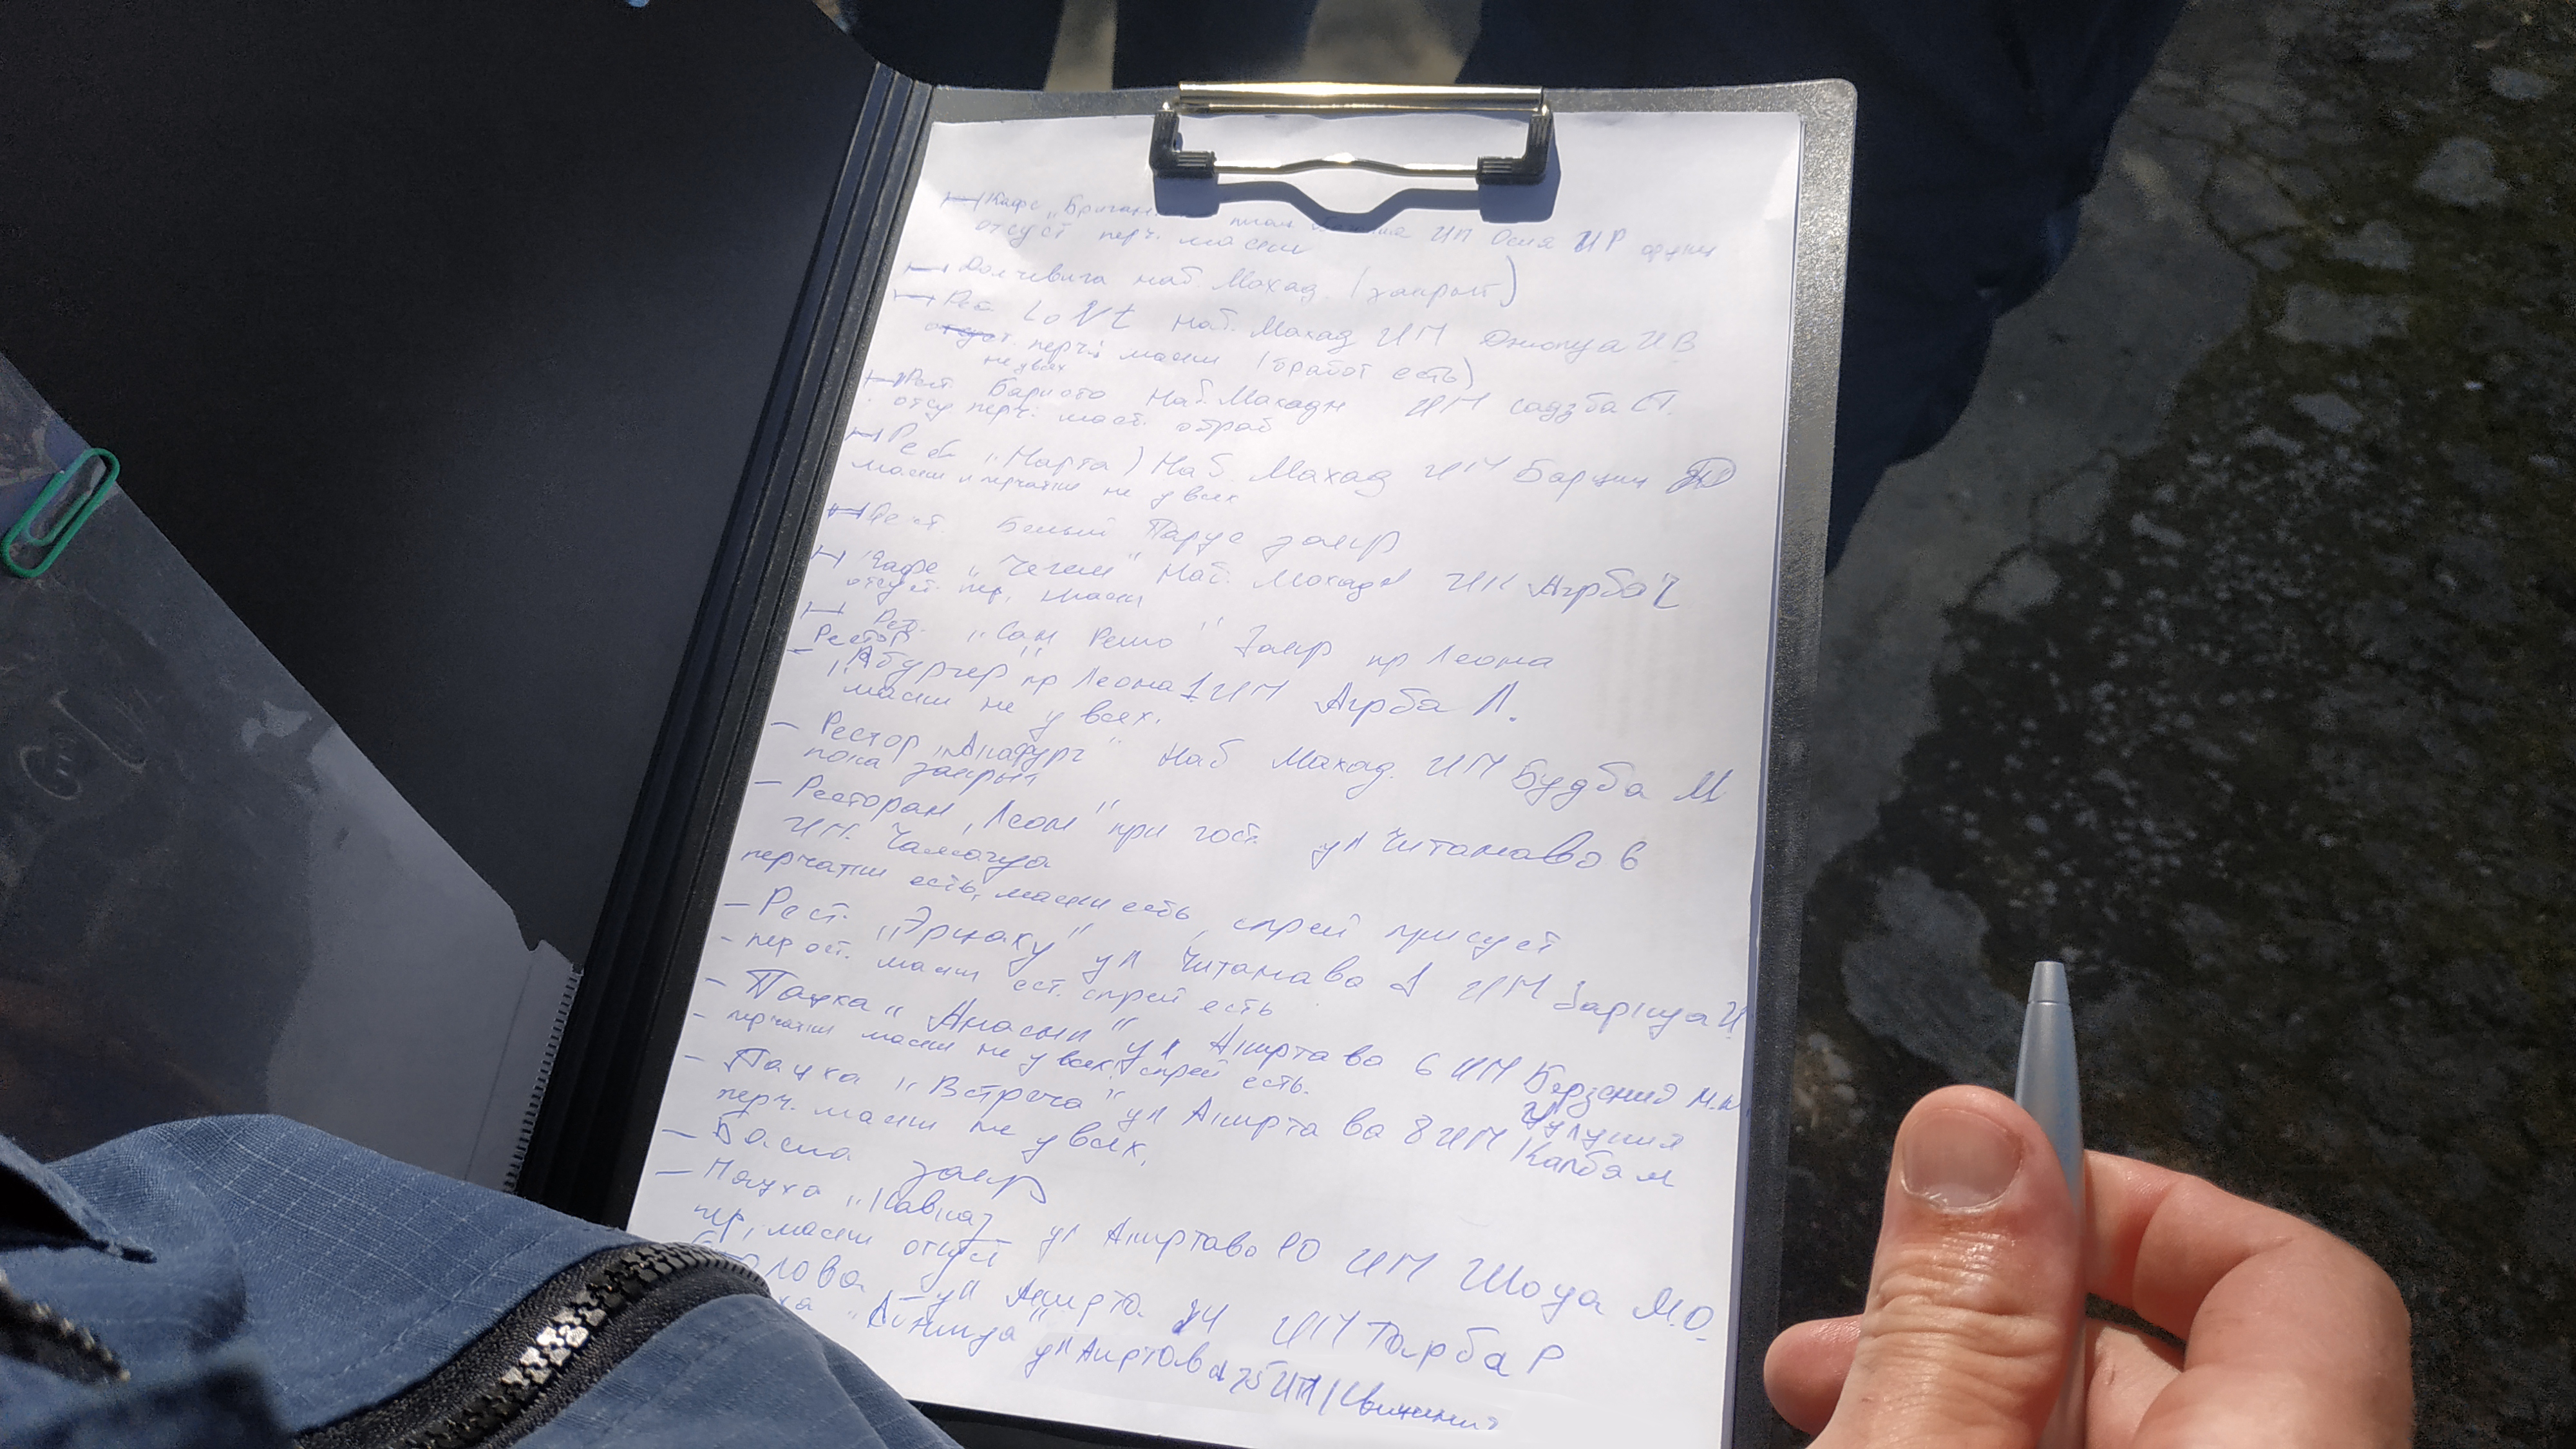 Кафе „Бриган ИП Осия ИР
отсуст перч. маски
Долчевита наб Махад. (закрыт)
Рест. LoNt наб. Махад ИП Джопуа И В
отсуст. перч. маски (обработ есть)
не у всех
Рест. наб. Махадж ИП Садзба СТ.
отсу перч. маск. обраб
Рест „Нарта) Наб. Махад ИП Барциц
маски и перчатки не у всех
Рест. Белый Парус закр
Кафе „Чегем" наб. Махадж ИП Агрба
отсуст. пер, маски
Рест. „Сан Ремо" Закр пр Леона
Рестор
„Абургер" пр Леона 1 ИП Агрба Л.
маски не у всех.
— Рестор „Акафурт" наб Махад. ИП Будба М
пока закрыт
— Ресторан „Леон" при гост. ул Читанаво 6
ИП. Чамагуа
перчатки есть, маски есть, спрей присуст
— Рест. „Эрцаху" ул Читанаво 1 ИП Барцуа И
- пер ест. маски ест. спрей есть
— Пацха „Апасны" ул Аиртаво 6 ИП Берзения М.
- перчатки маски не у всех, спрей есть.
— Пацха „Встреча" ул Аиртаво 8 ИП Капба М
перч. маски не у всех,
— Баска закр
— Пацха „Кавказ ул Аиртаво 10 ИП Шоуа М.О.
пер, маски отсуст
ул Аиртa ИП Тарба Р
ул Аиртава 75 ИП